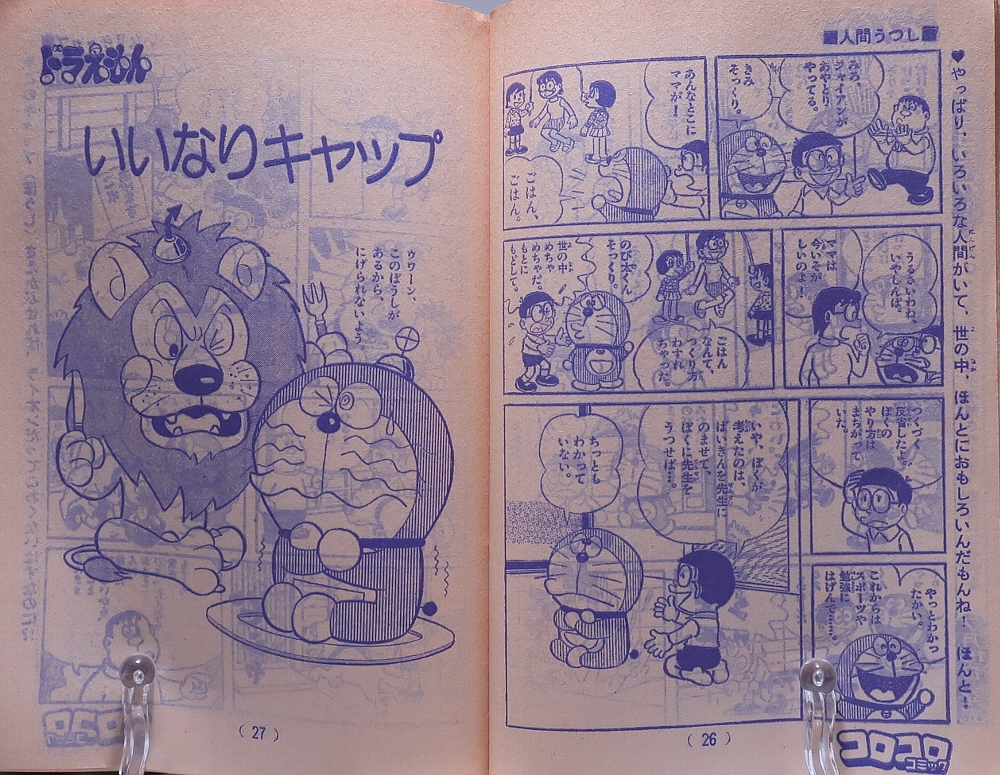 ■人間うつし■
♥やっぱり、いろいろな人間がいて、世の中、ほんとにおもしろいんだもんね！　ほんと！
みろ、
ジャイアンが
あやとり
やってる。
きみ
そっくり。
あんなとこに
ママが！
ごはん、
ごはん。
うるさいわね。
いやしんぼ。
ママは
今いそが
しいのよ！
ごはん
なんて、
つくり方
わすれ
ちゃった。
のび太くん
そっくり。
世の中
めちゃ
めちゃだ。
もとに
もどして。
つくづく
反省したよ。
ぼくの
やり方は
まちがって
いた。
やっとわかっ
たかい。
これからは
スポーツや
勉強に
はげんで……。
いや、ぼくが
考えたのは、
ばいきんを先生に
のませて、
ぼくに先生を
うつせば…。
ちっとも
わかって
いない。
（26）
コロコロ
コミック
ドラえもん
いいなりキャップ
ウワーン、
このぼうしが
あるから、
にげられないよう。
（27）